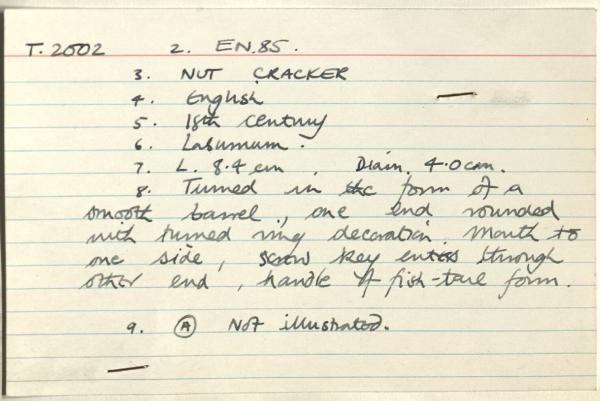 T. 2002 2. EN.85.
3. NUT CRACKER
4. English
5. 18th century
6. Laburnum.
7. L. 8.4 cm, Diam. 4.0 cm.
8. Turned in the form of a
smooth barrel, one end rounded
with turned ring decoration. Mouth to
one side, screw key enters through
other end, handle of fish-tail form.
9. A Not illustrated.